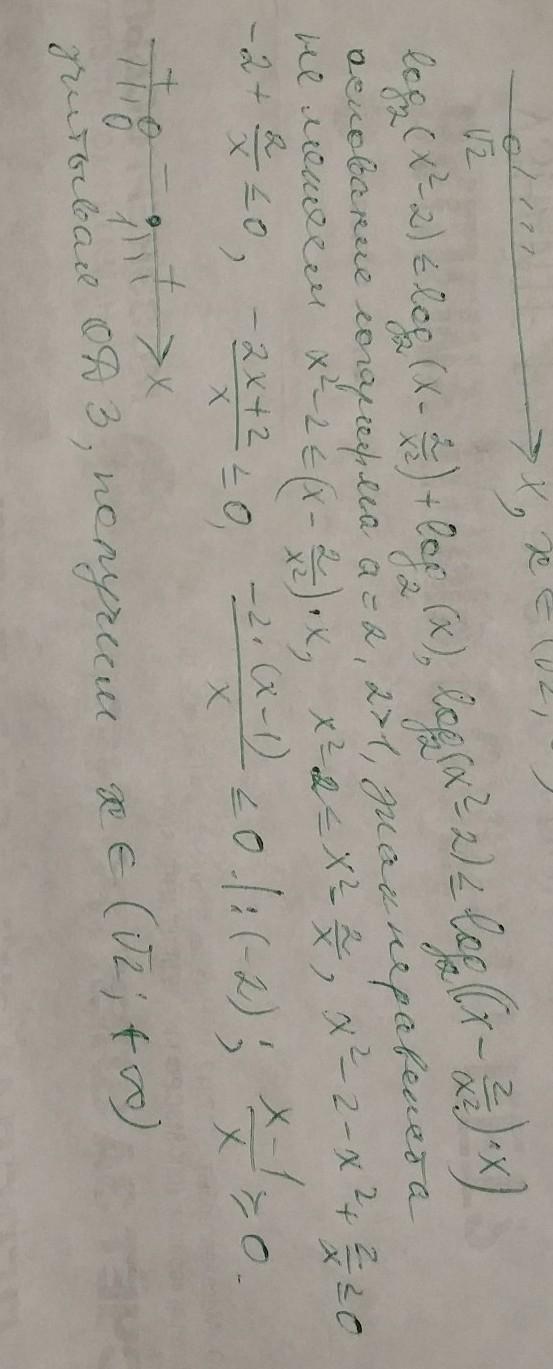 √2 x, x ∈ (√2;
log₂(x²-2) ≤ log₂(x - 2/x²) + log₂(x), log₂(x²-2) ≤ log₂((x - 2/x²)·x)
основание логарифма a=2, 2>1, знак неравенста
не меняем x²-2 ≤ (x - 2/x²)·x, x²-2 ≤ x² - 2/x, x²-2-x²+2/x ≤ 0
-2 + 2/x ≤ 0, (-2x+2)/x ≤ 0, (-2·(x-1))/x ≤ 0 |:(-2); (x-1)/x ≥ 0.
+ 0 - 1 + x
учитывая ОДЗ, получим x ∈ (√2; +∞)